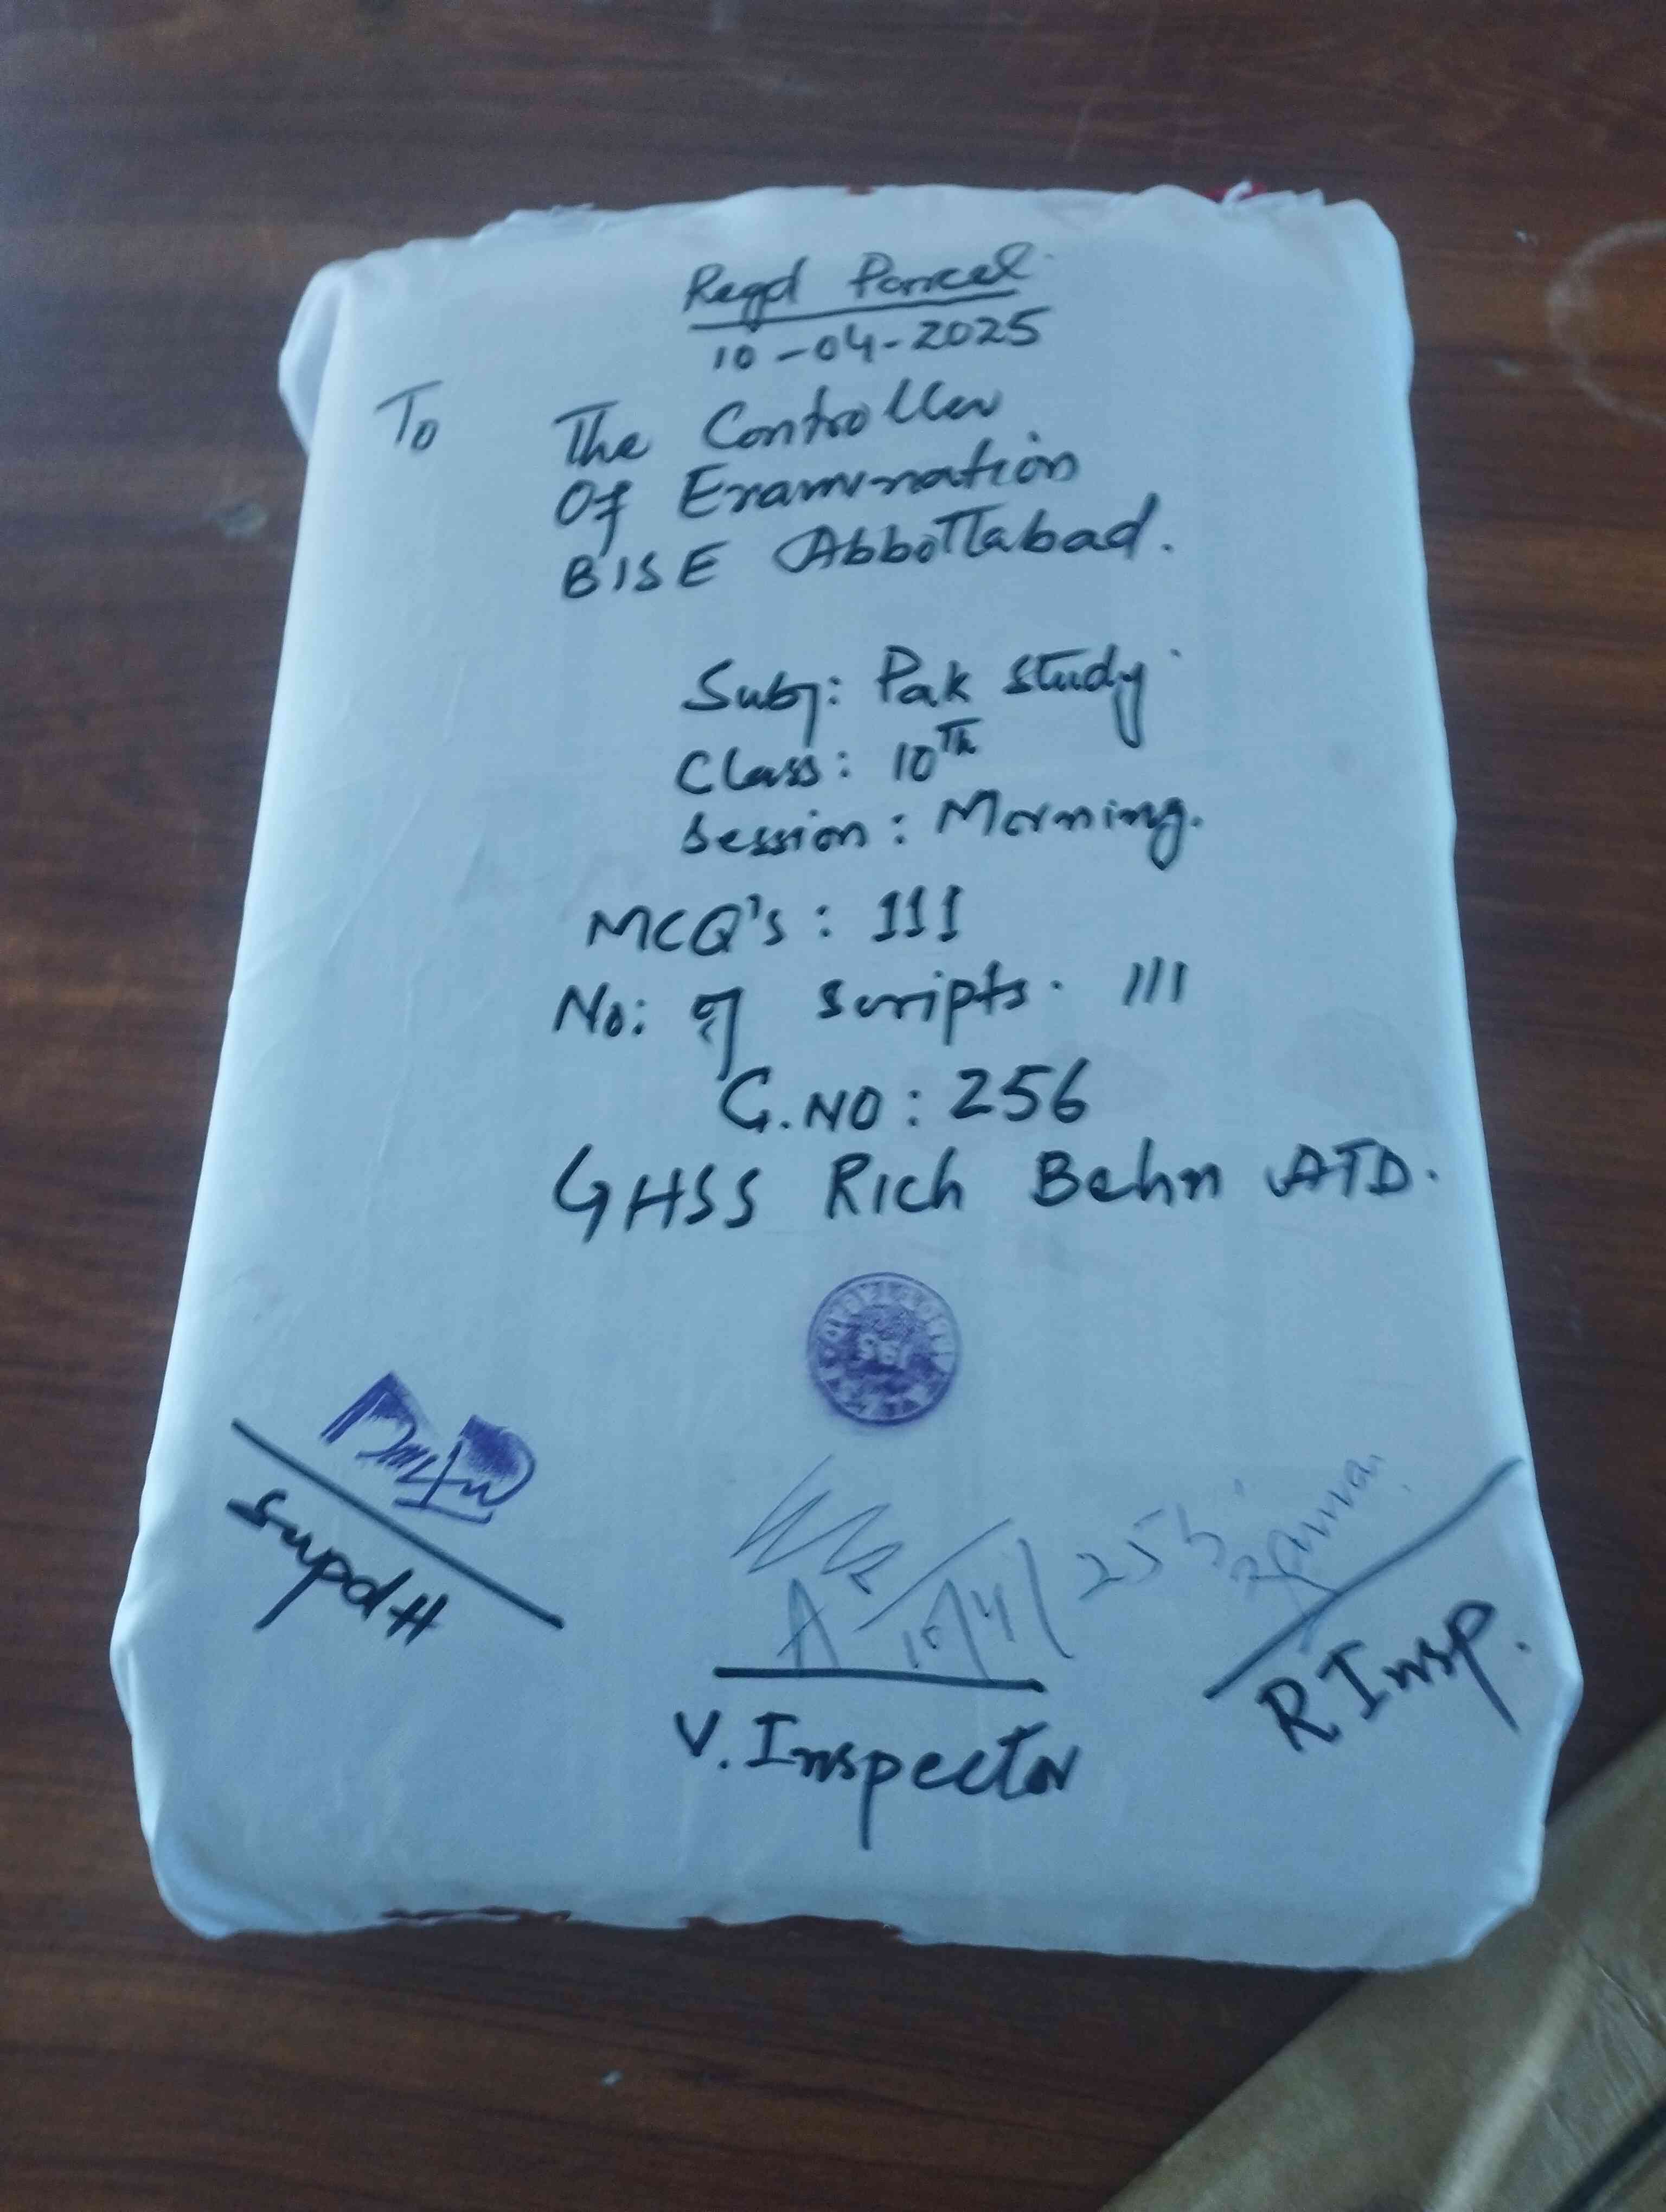 Regd Parcel
10-04-2025
To The Controller
Of Examination
BISE Abbottabad.
Subj: Pak study
Class: 10Th
Session: Morning.
MCQ's: 111
No: of scripts. 111
C.NO: 256
GHSS Rich Behn ATD.
Supdtt
V. Inspector
R Insp.